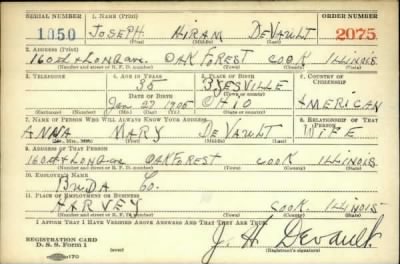 SERIAL NUMBER 1. NAME (Print) ORDER NUMBER
1050 JOSEPH HIRAM DEVAULT 2075
(First) (Middle) (Last)
2. ADDRESS (Print)
160th & LONG AVE. OAK FOREST COOK ILLINOIS
(Number and street or R. F. D. number) (Town) (County) (State)
3. TELEPHONE 4. AGE IN YEARS 5. PLACE OF BIRTH 6. COUNTRY OF CITIZENSHIP
35 BYESVILLE
DATE OF BIRTH (Town or county)
Jan 27 1905 OHIO AMERICAN
(Exchange) (No.) (Mo.) (Day) (Yr.) (State or country)
7. NAME OF PERSON WHO WILL ALWAYS KNOW YOUR ADDRESS 8. RELATIONSHIP OF THAT PERSON
ANNA MARY DEVAULT WIFE
(Mr., Mrs., Miss) (First) (Middle) (Last)
9. ADDRESS OF THAT PERSON
160th & LONG AVE OAK FOREST COOK ILLINOIS
(Number and street or R. F. D. number) (Town) (County) (State)
10. EMPLOYER'S NAME
BUDA Co.
11. PLACE OF EMPLOYMENT OR BUSINESS
HARVEY COOK. ILLINOIS
(Number and street or R. F. D. number) (Town) (County) (State)
I AFFIRM THAT I HAVE VERIFIED ABOVE ANSWERS AND THAT THEY ARE TRUE.
REGISTRATION CARD
D. S. S. Form 1 J. H. Devault
(over) (Registrant's signature)